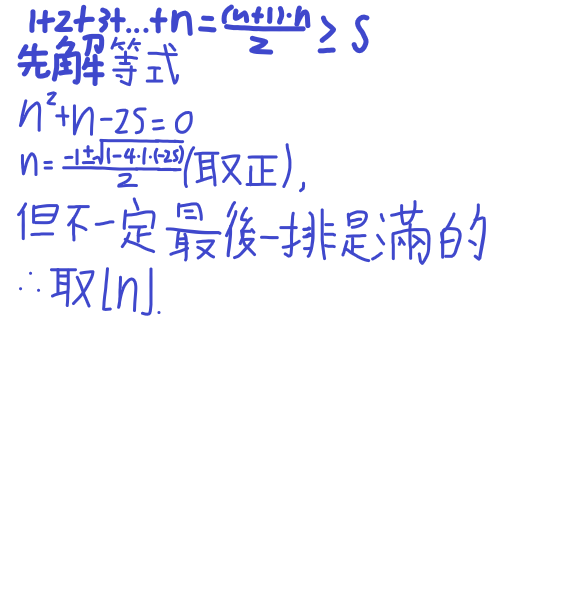 1+2+3+...+n=(n+1)·n/2≥S
先解等式
n²+n-2S=0
n=(-1±√(1-4·1·(-2S)))/2(取正),
但不一定最後一排是滿的
∴取⌊n⌋.